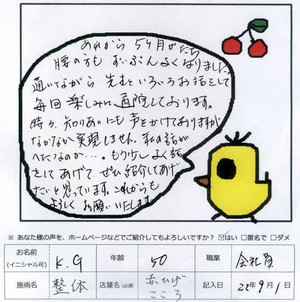 あれから5ヶ月がたち
腰の方もずいぶんよくなりました。
通いながら先生といろいろお話をして
毎回楽しみに通院しております。
時々、知りあいにも声をかけておりますが
なかなか実現しません。私の話が
へたなのか・・・もう少しよく話
をしてあげて、ぜひ紹介してあげ
たいと思っています。これからも
よろしくお願いします。
※ あなた様の声を、ホームページなどでご紹介してもよろしいですか？ はい □匿名で □ダメ
お名前 (イニシャル可) K.G 年齢 50 職業 会社員
施術名 整体 店舗名(必須) あかひげ こころ 記入日 22年9月1日